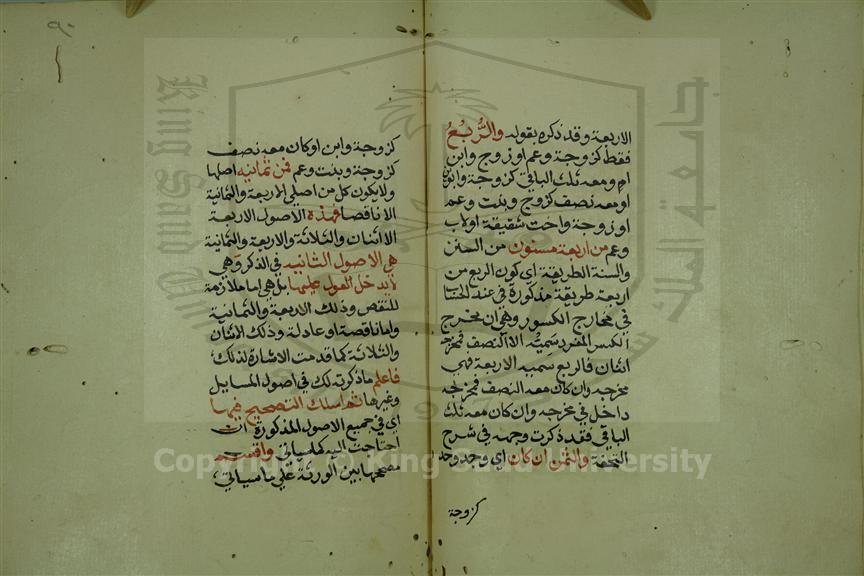 الاربعة وقد ذكره بقوله والرُّبْعُ
فقط كزوجة وعم او زوج وابن
او معه ثلث الباقي كزوجة وابوين
او معه نصف كزوج وبنت وعم
او زوجة واخت شقيقة اولاب
وعم من اربعة مسنون من السنن
والسنة الطريقة اي كون الربع من
اربعة طريقة مذكورة عند الحساب
في مخارج الكسور وهي ان مخرج
الكسر المفرد سميه الا النصف فمخرجه
اثنان فالربع سميه الاربعة فهي
مخرجه وان كان معه النصف فمخرجه
داخل في مخرجه وان كان معه ثلث
الباقي فقد ذكرت وجهه في شرح
التحفة والثمن ان كان اي وجد وحده
كزوجة
٩٠
كزوجة وابن او كان معه نصف
كزوجة وبنت وعم فمن ثمانية اصلها
ولا يكون كل من اصلي الاربعة والثمانية
الا ناقصا فهذه الاصول الاربعة
الاثنان والثلاثة والاربعة والثمانية
هي الاصول الثانيه في الذكر وهي
لا يدخل العول عليها بل هي اما ملازمة
للنقص وذلك الاربعة والثمانية
واما ناقصة او عادلة وذلك الاثنان
والثلاثة كما قدمت الاشارة لذلك
فاعلم ما ذكرته لك في اصول المسايل
وغيرها ثم اسلك التصحيح فيها
اي في جميع الاصول المذكورة ان
احتاجت اليه كما سياتي واقسم
مصححها بين الورثة علي ما سياتي
Copyright © King Saud University
King Saud University
جامعة الملك سعود